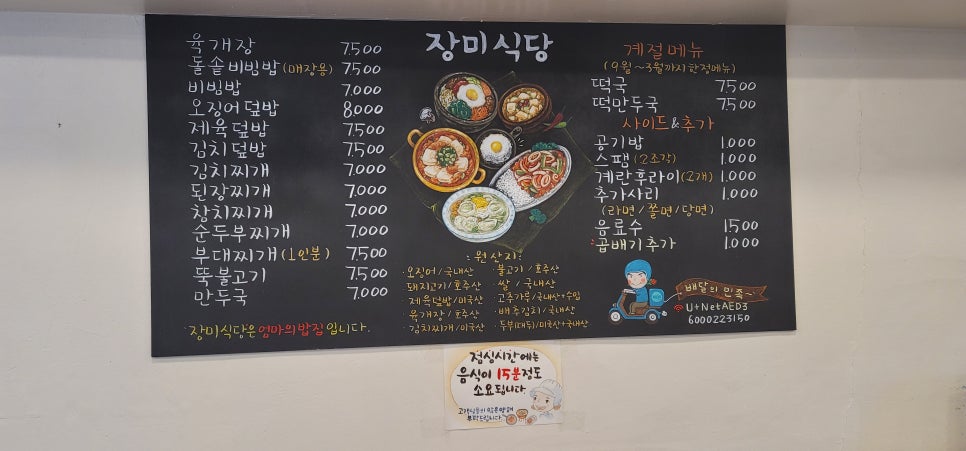 장미식당
육개장 7.500
돌솥비빔밥(매장용) 7.500
비빔밥 7.000
오징어덮밥 8000
제육덮밥 7.500
김치덮밥 7.500
김치찌개 7.000
된장찌개 7.000
참치찌개 7.000
순두부찌개 7.000
부대찌개(1인분) 7.500
뚝불고기 7.500
만두국 7.000
장미식당은 엄마의밥집입니다.
:원산지:
·오징어/국내산
·돼지고기/호주산
·제육덮밥/미국산
·육개장/호주산
·김치찌개/미국산
·불고기/호주산
·쌀/국내산
·고추가루/국내산+수입
·배추김치/국내산
·두부(대두)/미국산+국내산
계절메뉴
(9월~3월까지한정메뉴)
떡국 7500
떡만두국 7500
사이드&추가
공기밥 1.000
스팸(2조각) 1.000
계란후라이(2개) 1.000
추가사리 1.000
(라면/쫄면/당면)
음료수 1.500
곱배기추가 1.000
배달의민족~
U+NetAED3
6000223150
점심시간에는
음식이 15분정도
소요됩니다.
고객님들의 많은양해
부탁드립니다.